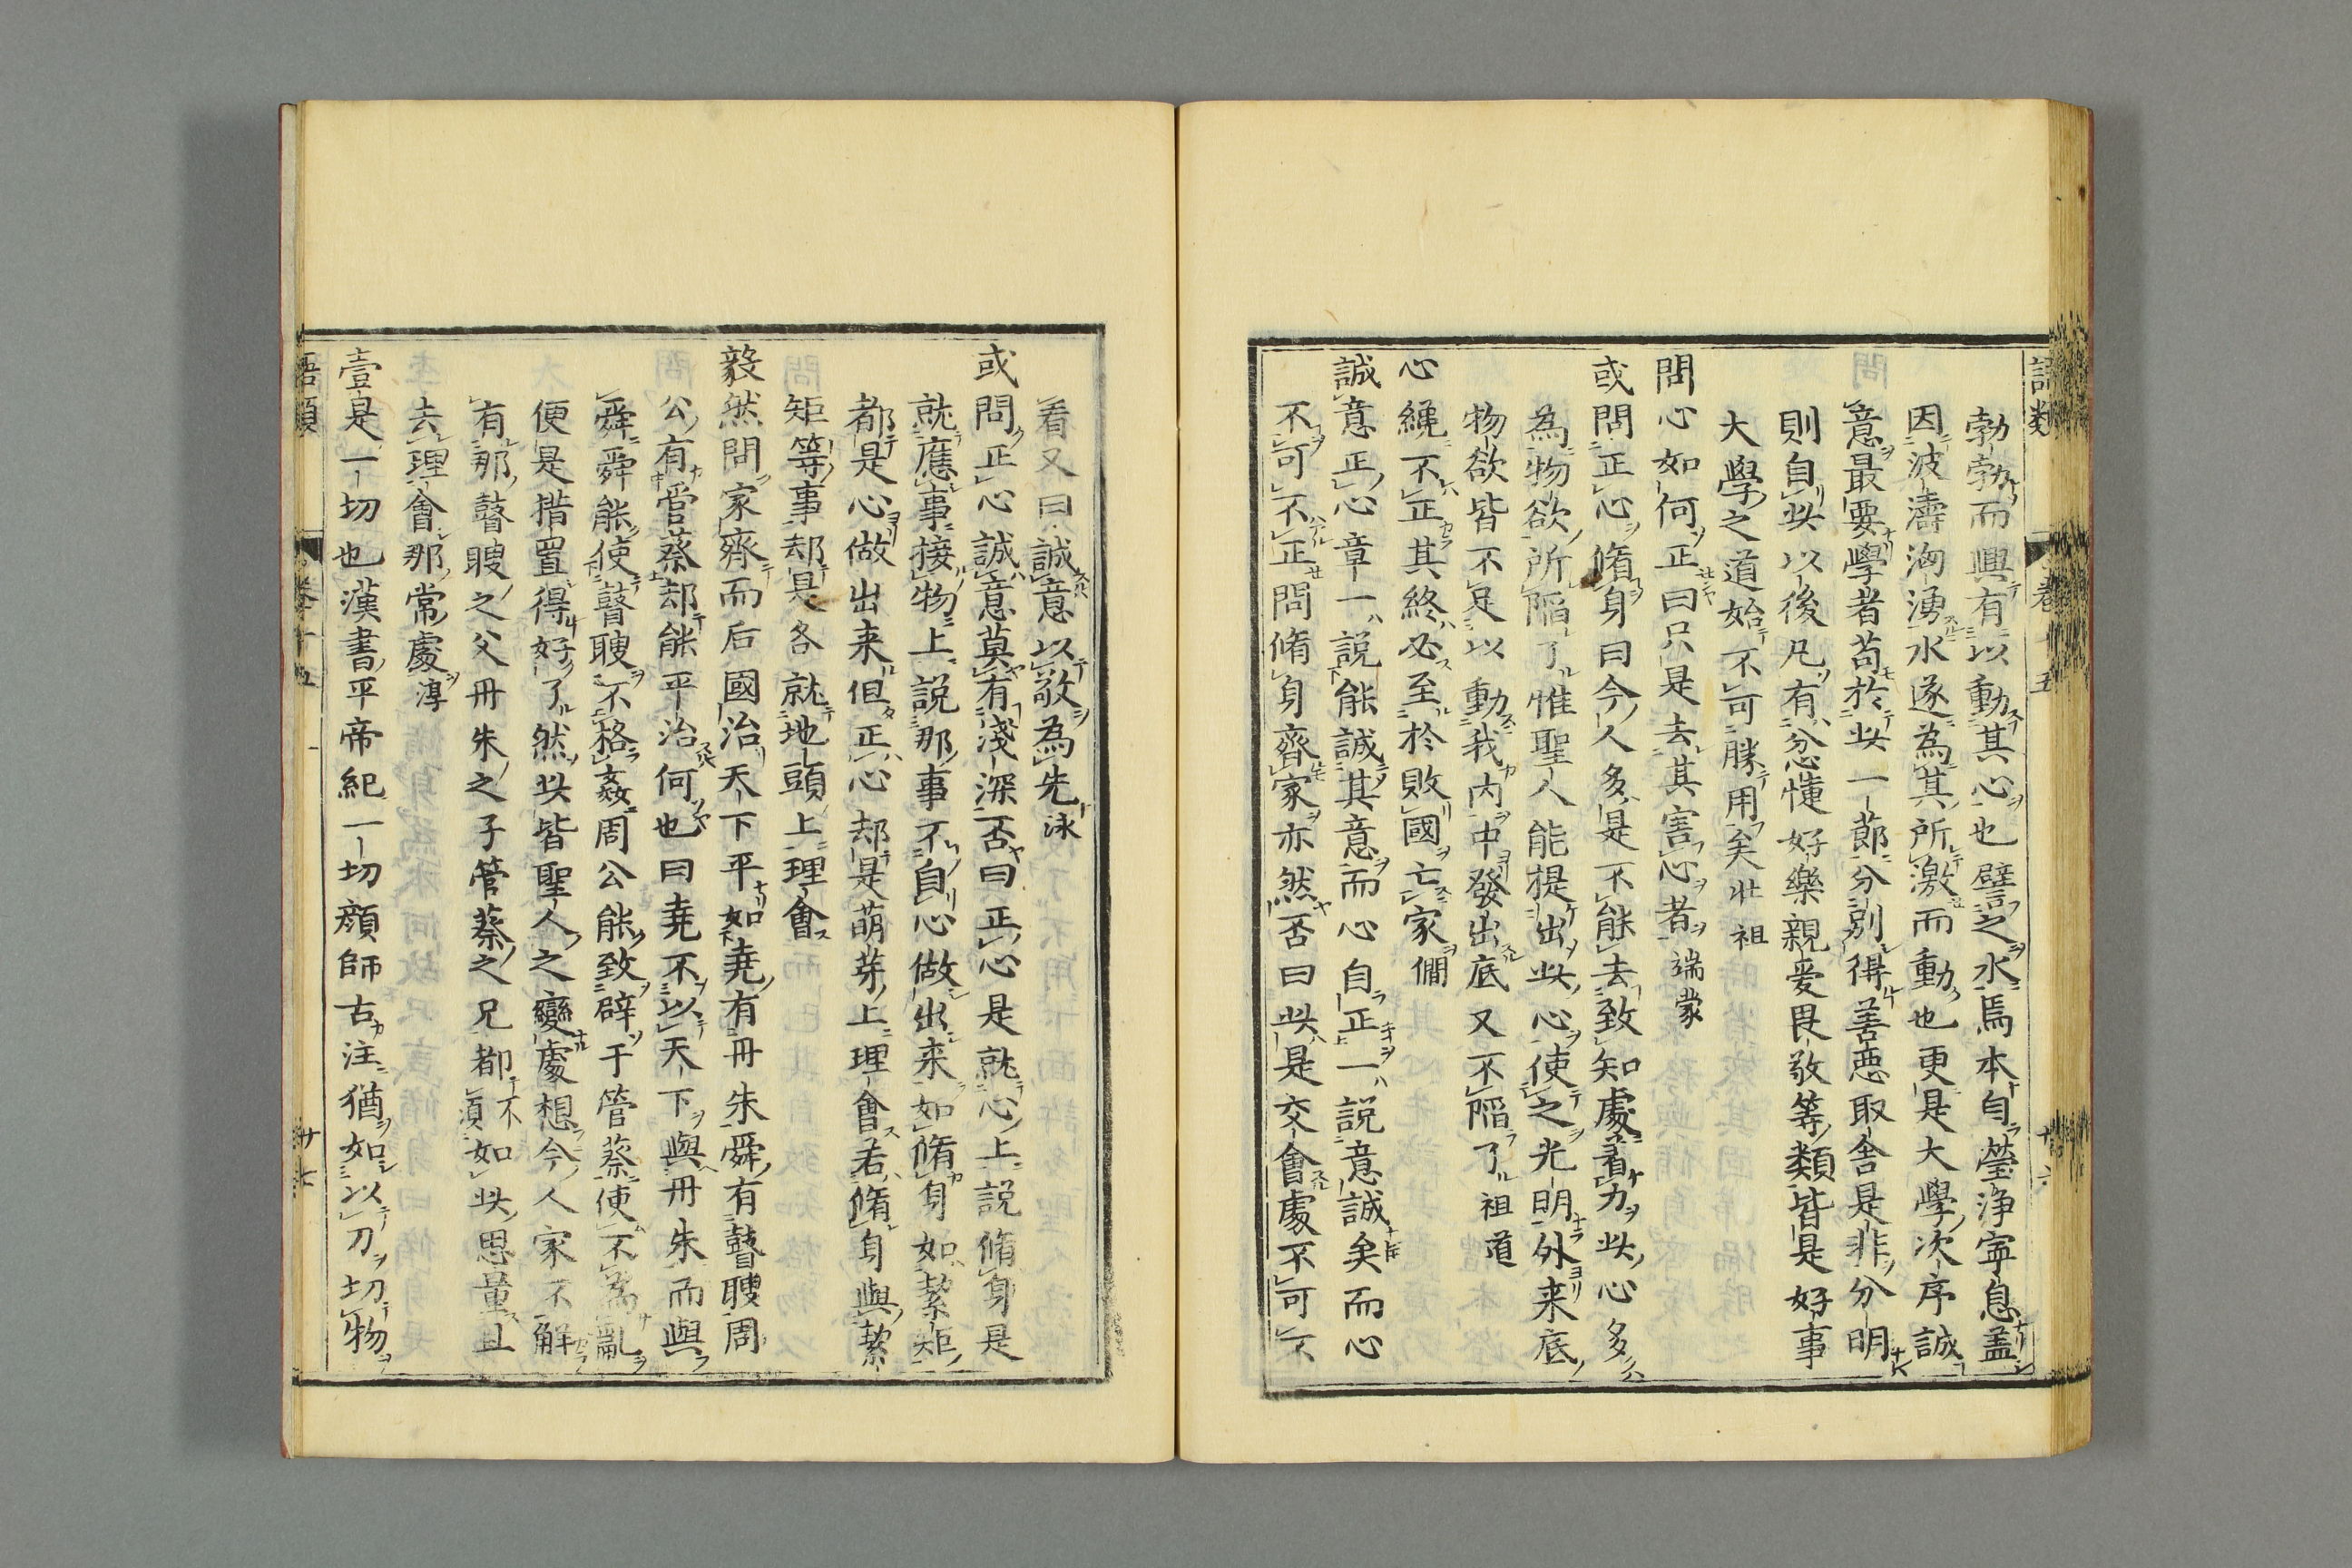 語類 卷十五 十六
勃勃而興有以動其心也譬之水焉本自瑩淨寧息盖
因波濤洶湧水遂為其所激而動也更是大學次序誠
意最要學者苟於此一莭分別得善惡取舍是非分明
則自此以後凡有忿懥好樂親愛畏敬等類皆是好事
大學之道始不可勝用矣壮祖
問心如何正曰只是去其害心者端蒙
或問正心脩身曰今人多是不能去致知處着力此心多
為物欲所陷了惟聖人能提出此心使之光明外来底
物欲皆不足以動我内中發出底又不陷了祖道
心纔不正其終必至於敗國亡家僩
誠意正心章一說能誠其意而心自正一說意誠矣而心
不可不正問脩身齊家亦然否曰此是交會處不可不
着又曰誠意以敬為先泳
或問正心誠意莫有淺深否曰正心是就心上說脩身是
就應事接物上說那事不自心做出来如脩身如絜矩
都是心做出来但正心却是萌芽上理會若脩身與絜
矩等事却是各就地頭上理會
毅然問家齊而后國治天下平如堯有丹朱舜有瞽瞍周
公有管蔡却能平治何也曰堯不以天下與丹朱而與
舜舜能使瞽瞍不格姦周公能致辟于管蔡使不為亂
便是措置得好了然此皆聖人之變處想今人家不解
有那瞽瞍之父丹朱之子管蔡之兄都不須如此思量且
去理會那常處淳
壹是一切也漢書平帝紀一切顏師古注猶如以刀切物
語類 卷十五 廿七